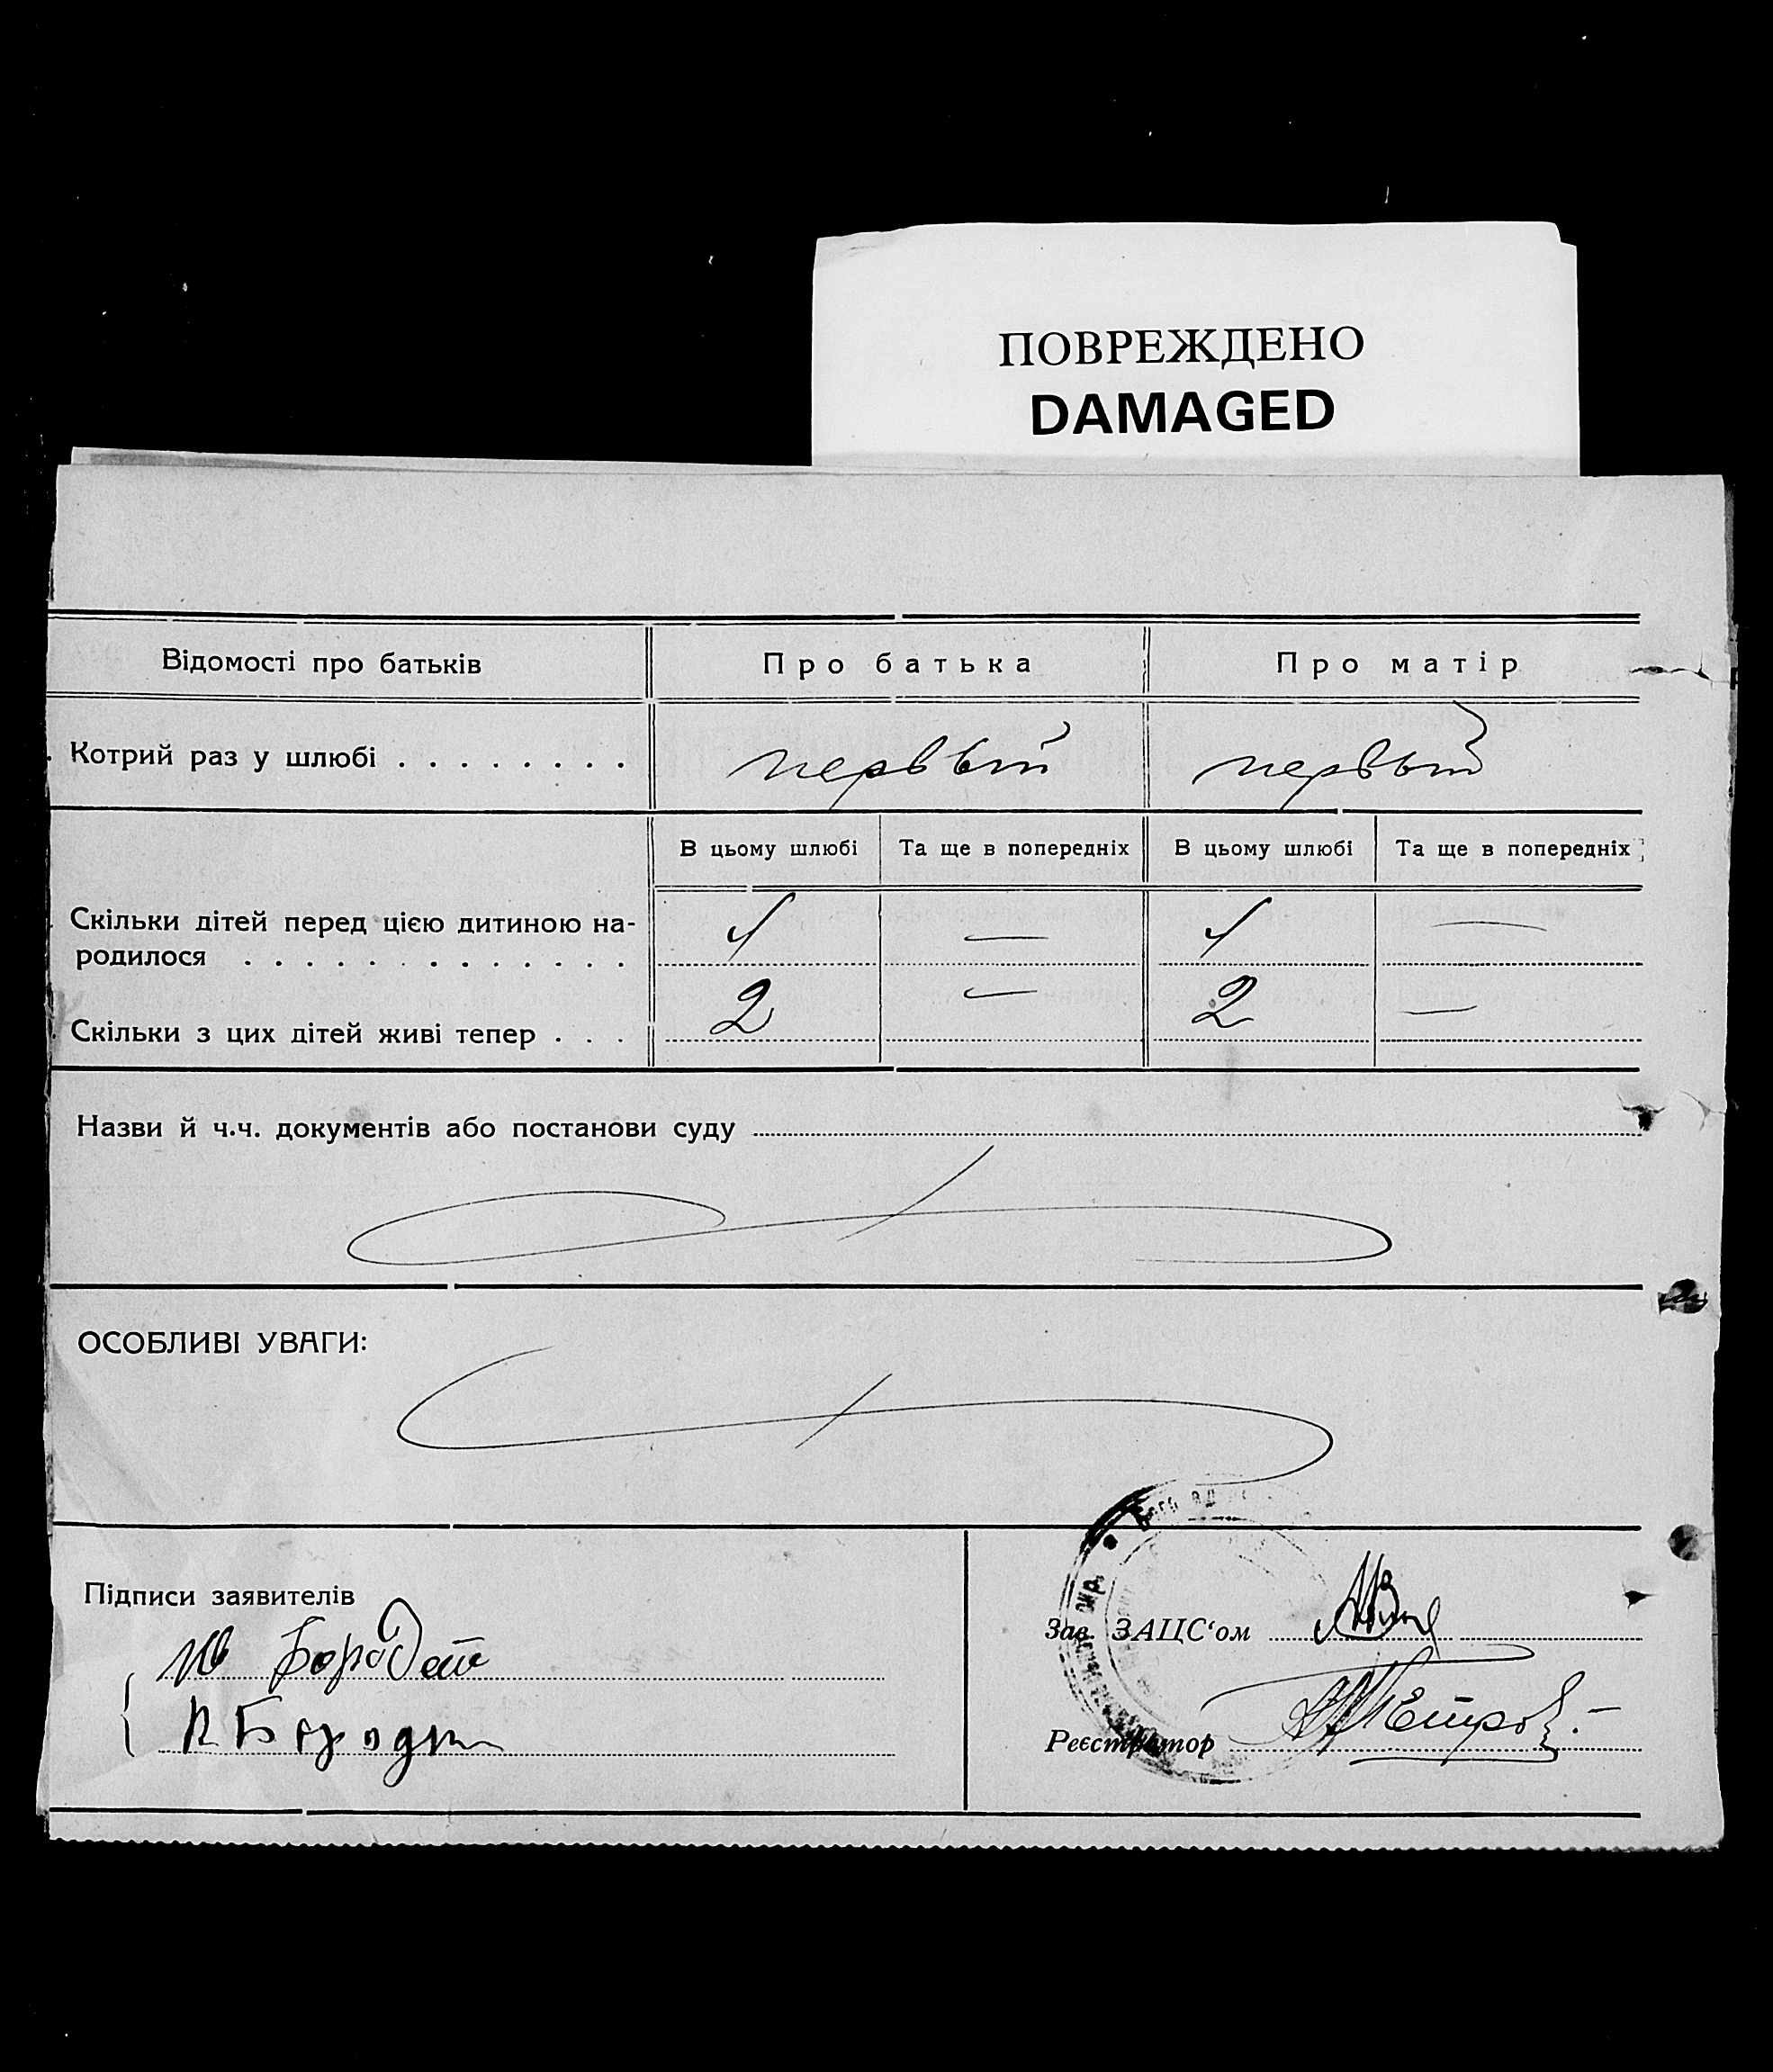 ПОВРЕЖДЕНО
DAMAGED
Відомості про батьків
Про батька
Про матір
Котрий раз у шлюбі
первый
первый
В цьому шлюбі
Та ще в попередніх
В цьому шлюбі
Та ще в попередніх
Скільки дітей перед цією дитиною на-
родилося
1 — 1 —
Скільки з цих дітей живі тепер
2 — 2 —
Назви й ч.ч. документів або постанови суду
ОСОБЛИВІ УВАГИ:
Підписи заявителів
Зав. ЗАЦС‘ом
Реєстратор